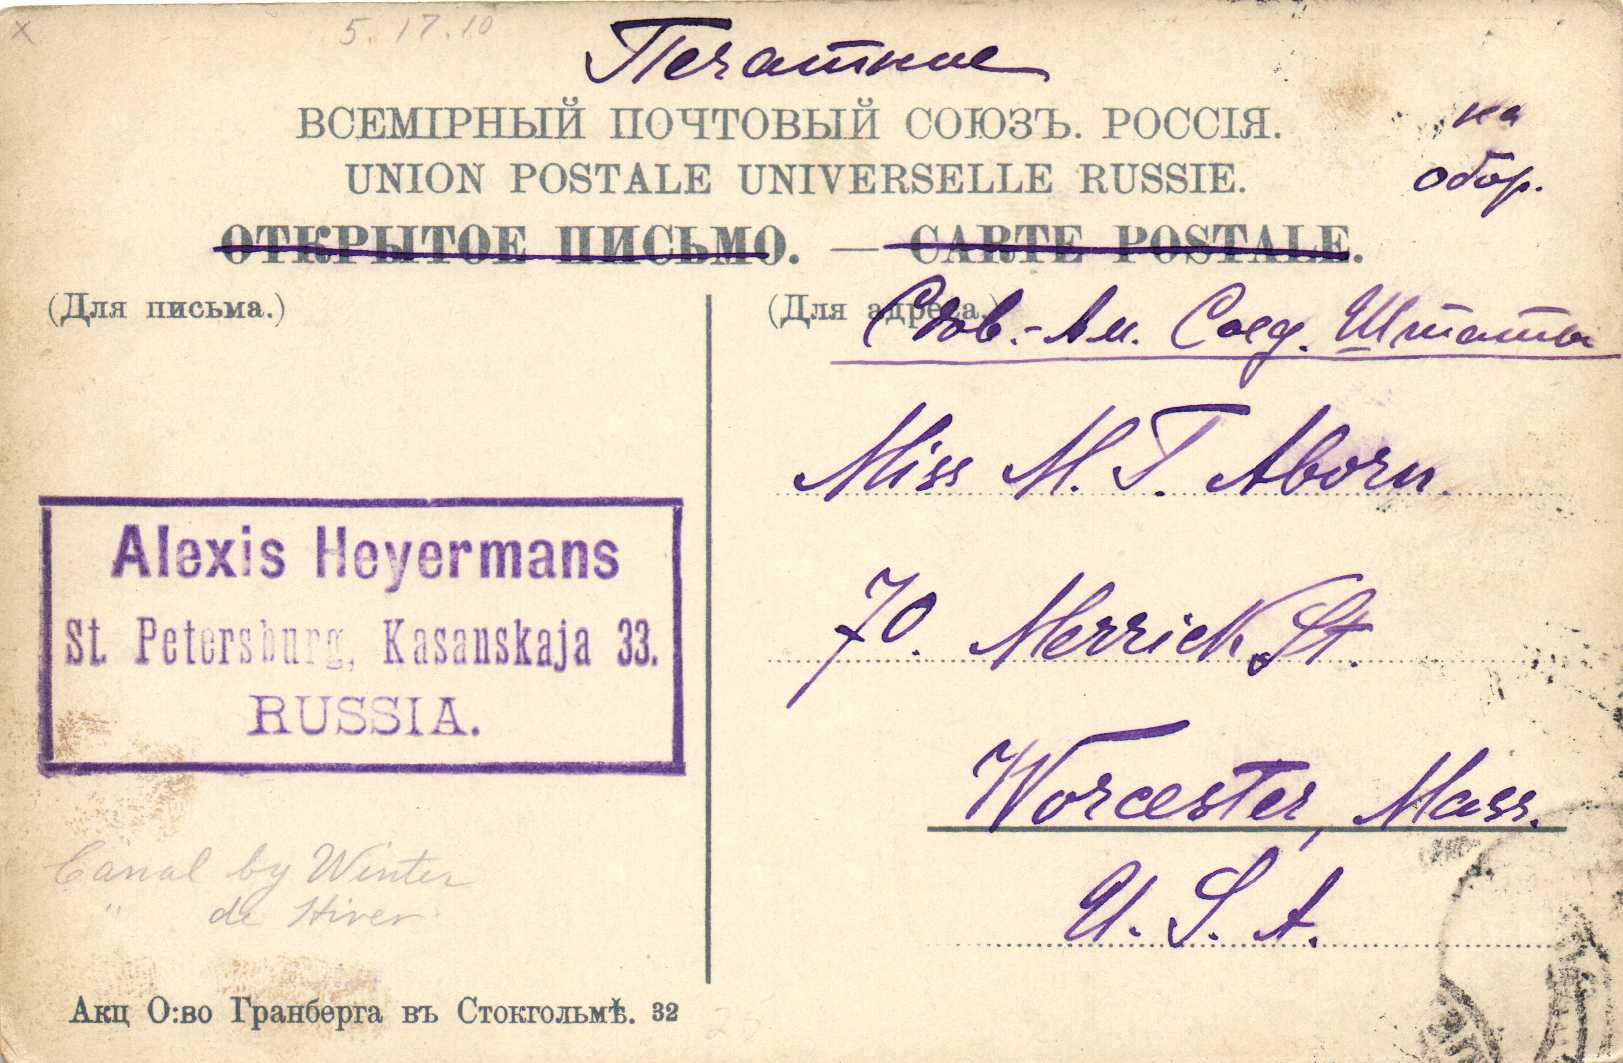 5.17.10
Печатное
ВСЕМІРНЫЙ ПОЧТОВЫЙ СОЮЗЪ. РОССІЯ.
на
UNION POSTALE UNIVERSELLE RUSSIE.
обор.
ОТКРЫТОЕ ПИСЬМО. — CARTE POSTALE.
(Для письма.)
(Для адреса.)
Сѣв.-Ам. Соед. Штаты
Miss M. T. Aborn.
Alexis Heyermans
St. Petersburg, Kasanskaja 33.
RUSSIA.
70. Merrick St.
Worcester, Mass.
U. S. A.
Canal by Winter
" de Hiver
Акц О:во Гранберга въ Стокгольмѣ. 32